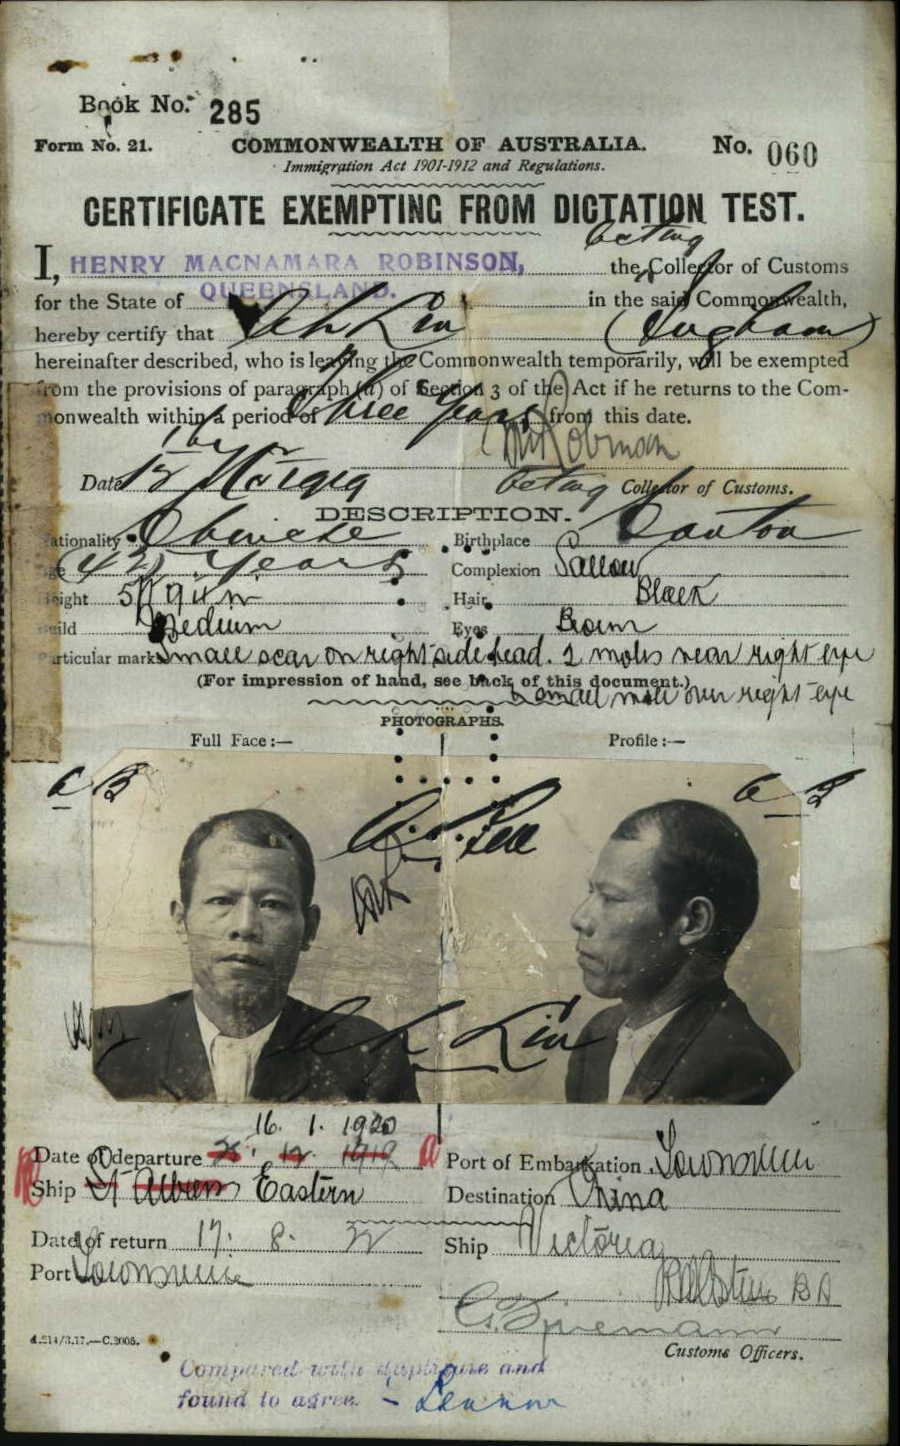 Book No. 285
Form No. 21. COMMONWEALTH OF AUSTRALIA. No. 060
Immigration Act 1901-1912 and Regulations.
CERTIFICATE EXEMPTING FROM DICTATION TEST.
Acting
I, HENRY MACNAMARA ROBINSON, the Collector of Customs
for the State of QUEENSLAND. in the said Commonwealth,
hereby certify that Ah Lin (Ingham)
hereinafter described, who is leaving the Commonwealth temporarily, will be exempted
from the provisions of paragraph (a) of Section 3 of the Act if he returns to the Com-
monwealth within a period of three years from this date.
Robinson
Date 1919 Acting Collector of Customs.
DESCRIPTION.
Nationality Chinese Birthplace Canton
Age 42 years Complexion Sallow
Height Hair Black
Build Medium Eyes Brown
Particular marks Small scar on right side head. 2 moles near right eye
(For impression of hand, see back of this document.)
small mole over right eye
PHOTOGRAPHS.
Full Face:— Profile:—
Ah Lin
16. 1. 1920
Date of departure 1919 Port of Embarkation Townsville
Ship St Albans Eastern Destination China
Date of return 17. 8. 22 Ship Victoria
Port Townsville
Customs Officers.
A.214/3.17.—C.2008.
Compared with duplicate and
found to agree. –